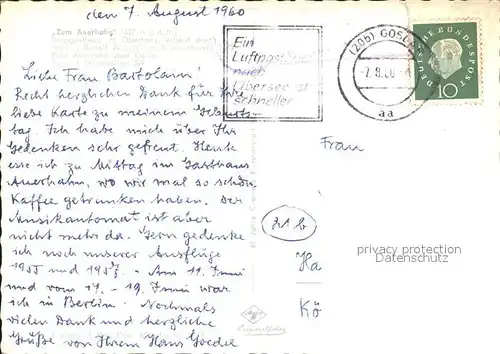 den 7. August 1960
"Zum Auerhahn"
Liebe Frau Bartolann!
Recht herzlichen Dank für Ihre
liebe Karte zu meinem Geburts-
tag. Ich habe mich über Ihr
Gedenken sehr gefreut. Heute
esse ich zu Mittag im Gasthaus
Auerhahn, wo wir mal so schön
Kaffee getrunken haben. Der
Musikautomat ist aber
nicht mehr da. Gern gedenke
ich noch unserer Ausflüge
1955 und 1957. - Am 11. Juni
und vom 17. - 19. Juni war
ich in Berlin. Nochmals
vielen Dank und herzliche
Grüße von Ihrem Hans Goedel
Ein
Luftpost
nach
Übersee ist
schneller
(20b) GOS
-7.8.60
aa
DEUTSCHE BUNDESPOST
10
Frau
21b
Ha
Kö
privacy protection
Datenschutz